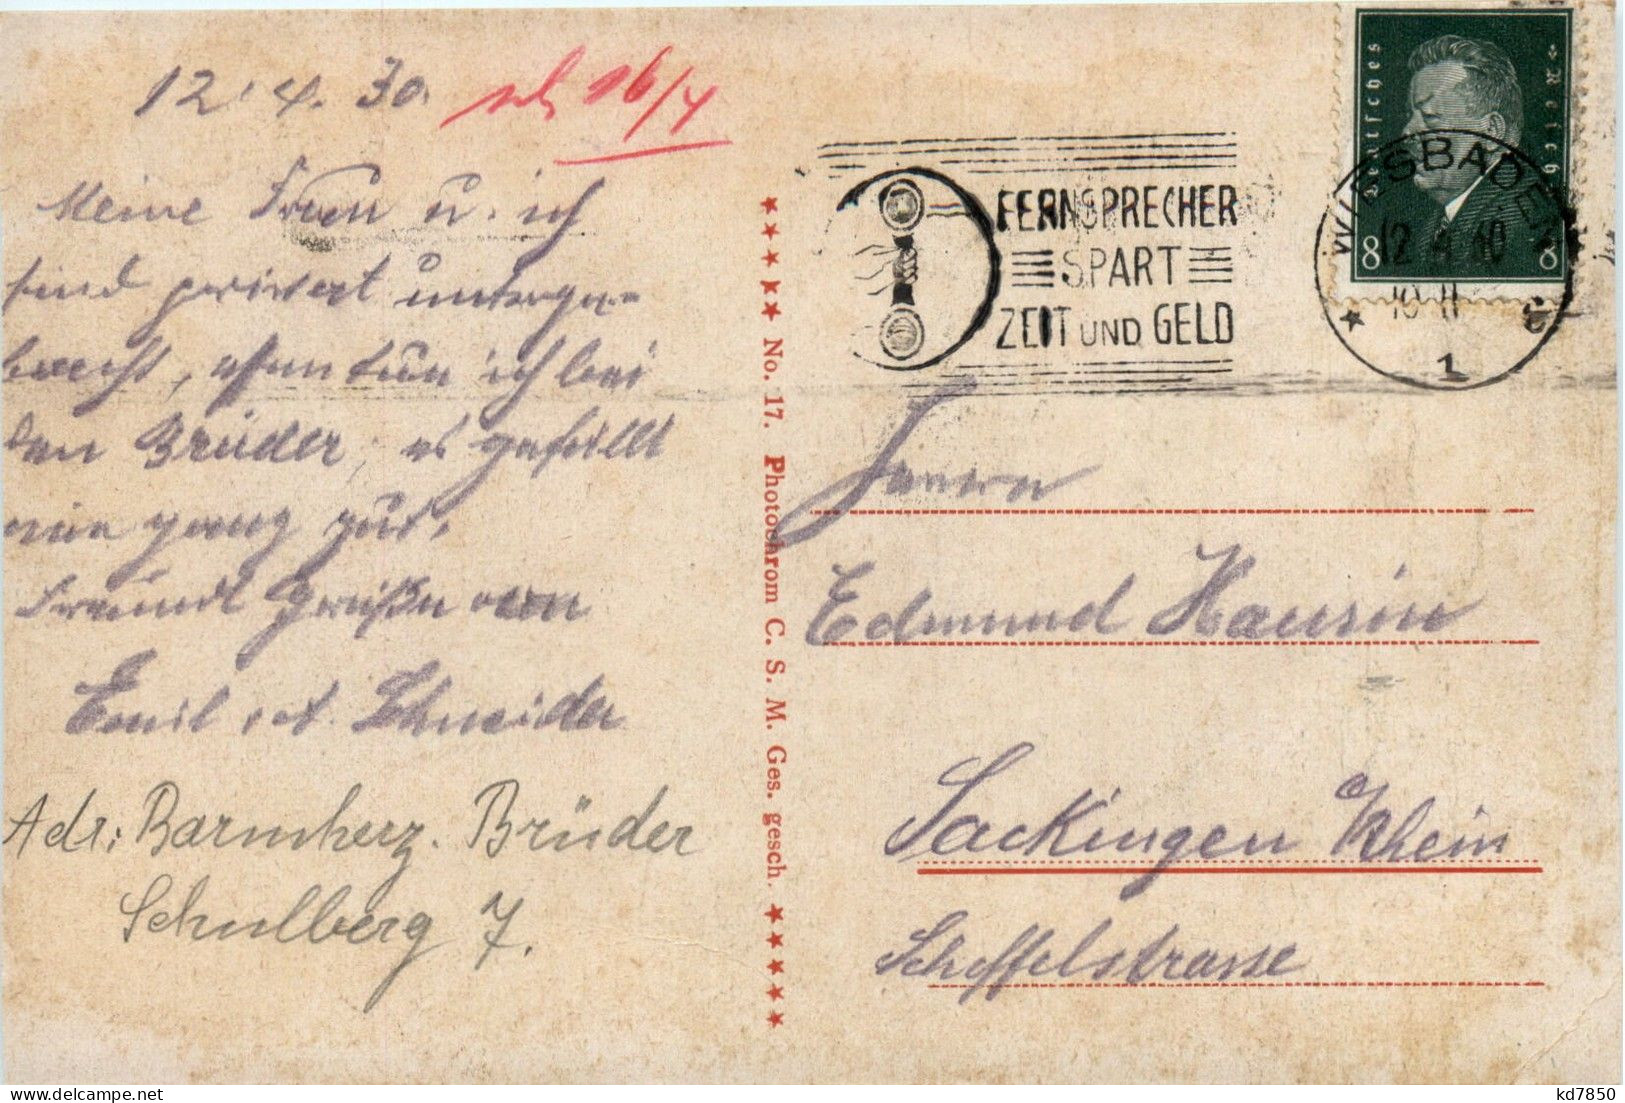 12.4.30. 16/4
Meine Frau u. ich
sind privat unterge-
bracht, essen tun ich bei
den Brüder, es gefällt
mir ganz gut.
Freundl Grüße von
Emil Schneider
Adr: Barmherz. Brüder
Schulberg 7.
No. 17. Photochrom C. S. M. Ges. gesch.
FERNSPRECHER
SPART
ZEIT UND GELD
Deutsches Reich
8 8
WIESBADEN
1
Herrn
Edmund Hausin
Säckingen Rhein
Scheffelstrasse
kd7850